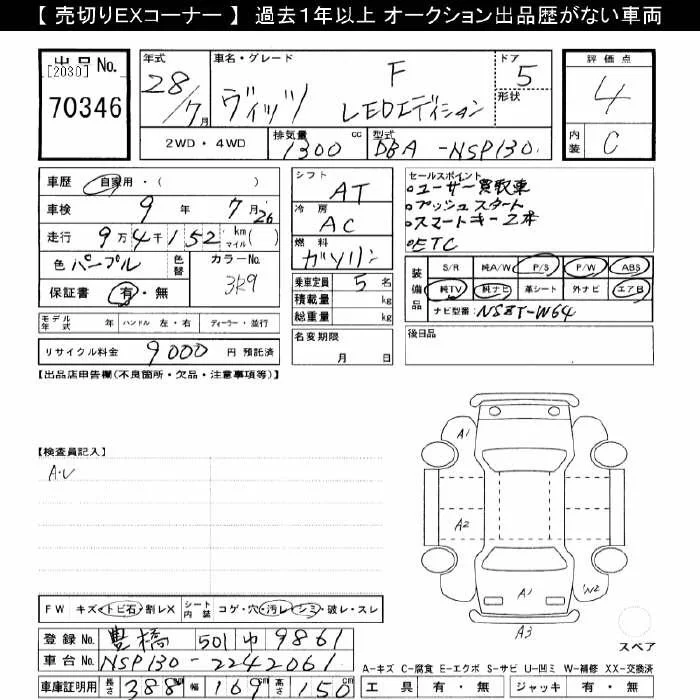 【 売切りEXコーナー 】 過去1年以上 オークション出品歴がない車両
出品 No.
[2030]
70346
年式 28/7月
車名・グレード ヴィッツ F LEDエディション
ドア 5
形状
評価点 4
内装 C
2WD・4WD
排気量 1300 cc
型式 DBA-NSP130
車歴 自家用・( )
車検 9年 7月26
走行 9万4千152 km マイル ( )
色 パープル 色替 カラーNo. 3R9
保証書 有・無
モデル年式 年 ハンドル 左・右 ディーラー・並行
リサイクル料金 9000 円 預託済
シフト AT
冷房 AC
燃料 ガソリン
乗車定員 5 名
積載量 kg
総重量 kg
名変期限 月 日
セールスポイント
○ユーザー買取車
○プッシュスタート
○スマートキー2本
○ETC
装備品 S/R 純A/W P/S P/W ABS
純TV 純ナビ 革シート 外ナビ エアB
ナビ型番 NSZT-W64
後日品
【出品店申告欄(不良箇所・欠品・注意事項等)】
【検査員記入】
A・U
A1
A2
A1
W2
A3
スペア
FW キズ・トビ石・割レX シート内装 コゲ・穴・汚レ・シミ・破レ・スレ
登録 No. 豊橋 501 ゆ 9861
車台 No. NSP130-2242061
車庫証明用 長さ 388 幅 169 cm 高さ 150 cm
A-キズ C-腐食 E-エクボ S-サビ U-凹ミ W-補修 XX-交換済
工具 有・無 ジャッキ 有・無